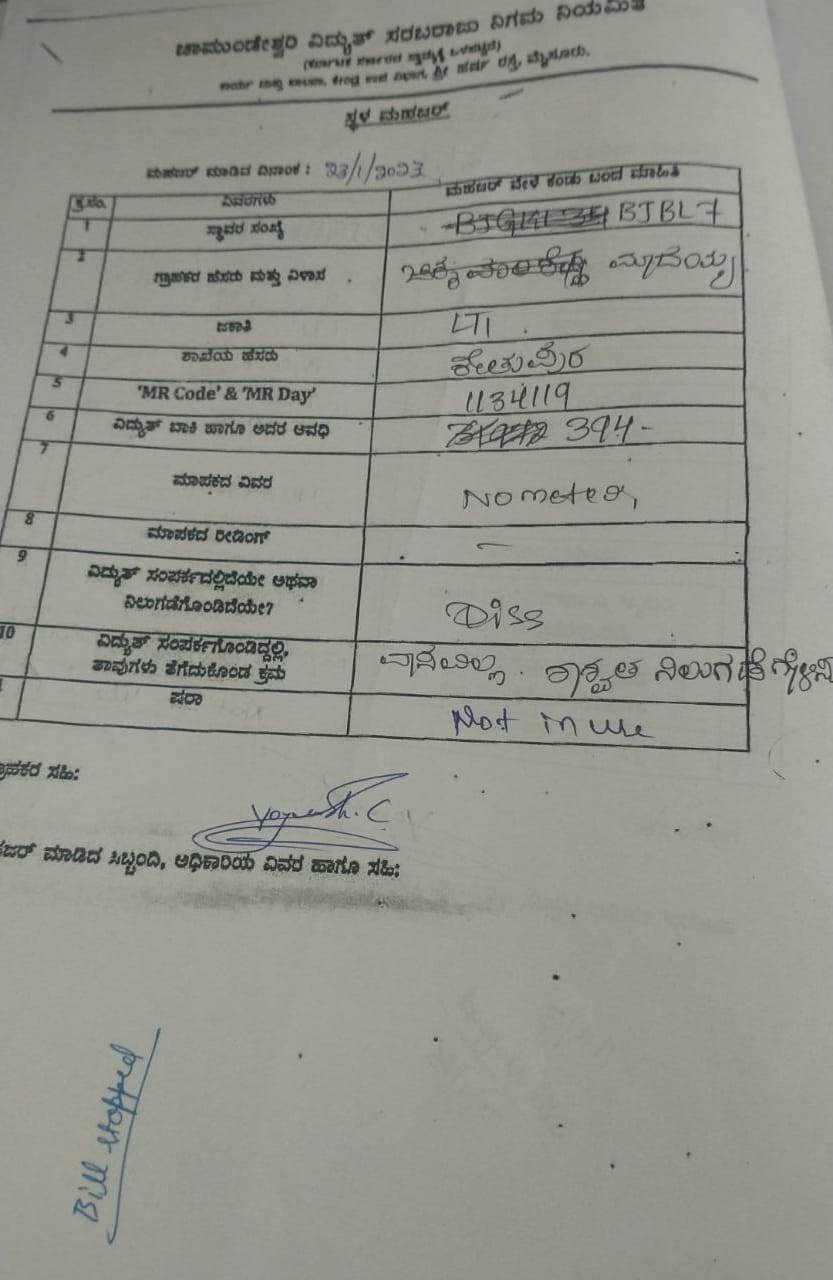 ಚಾಮುಂಡೇಶ್ವರಿ ವಿದ್ಯುತ್ ಸರಬರಾಜು ನಿಗಮ ನಿಯಮಿತ
(ಕರ್ನಾಟಕ ಸರ್ಕಾರದ ಸ್ವಾಮ್ಯಕ್ಕೆ ಒಳಪಟ್ಟಿದೆ)
ಮೈಸೂರು.
ಸ್ಥಳ ಮಹಜರ್
ಮಹಜರ್ ಮಾಡಿದ ದಿನಾಂಕ : 23/1/2023
ಕ್ರ.ಸಂ. ವಿವರಗಳು ಮಹಜರ್ ವೇಳೆ ಕಂಡು ಬಂದ ಮಾಹಿತಿ
1 ಸ್ಥಾವರ ಸಂಖ್ಯೆ BJBL7
2 ಗ್ರಾಹಕರ ಹೆಸರು ಮತ್ತು ವಿಳಾಸ ಮಾದಯ್ಯ
3 ಜಕಾತಿ LT1
4 ಶಾಖೆಯ ಹೆಸರು
5 'MR Code' & 'MR Day' 1134119
6 ವಿದ್ಯುತ್ ಬಾಕಿ ಹಾಗೂ ಅದರ ಅವಧಿ 394-
7 ಮಾಪಕದ ವಿವರ No meter
8 ಮಾಪಕದ ರೀಡಿಂಗ್ -
9 ವಿದ್ಯುತ್ ಸಂಪರ್ಕದಲ್ಲಿದೆಯೇ ಅಥವಾ
ನಿಲುಗಡೆಗೊಂಡಿದೆಯೇ? Diss
10 ವಿದ್ಯುತ್ ಸಂಪರ್ಕಗೊಂಡಿದ್ದಲ್ಲಿ,
ತಾವುಗಳು ತೆಗೆದುಕೊಂಡ ಕ್ರಮ ವಾಸವಿಲ್ಲ. ಶಾಶ್ವತ ನಿಲುಗಡೆಗೊಳಿಸಿ
ಷರಾ Not in use
ಗ್ರಾಹಕರ ಸಹಿ:
Yogesh. C
ಮಹಜರ್ ಮಾಡಿದ ಸಿಬ್ಬಂದಿ, ಅಧಿಕಾರಿಯ ವಿವರ ಹಾಗೂ ಸಹಿ:
Bill stopped